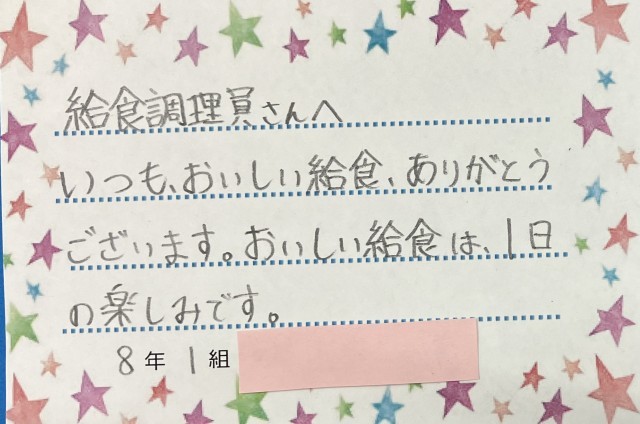 給食調理員さんへ
いつも、おいしい給食、ありがとう
ございます。おいしい給食は、1日
の楽しみです。
8年1組